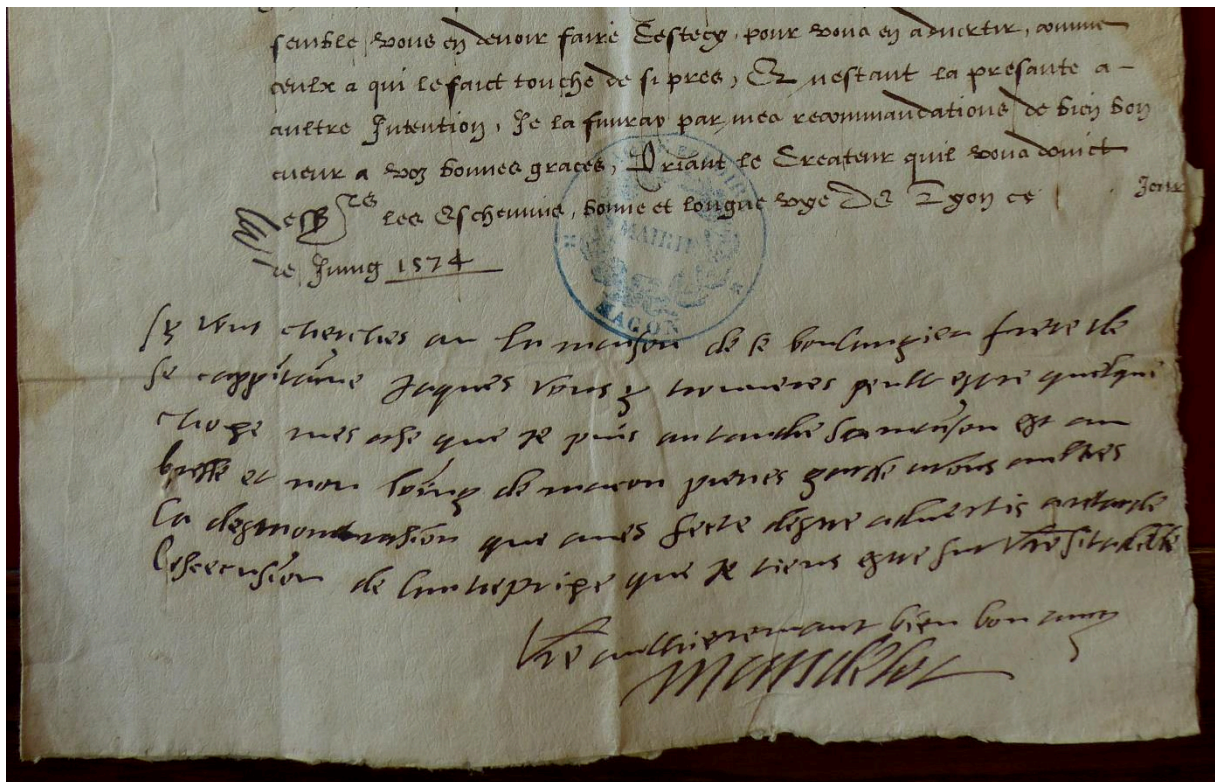 semble vous en devoir faire Cestecy, pour vous en advertir, comme
ceulx a qui le faict touche de si pres, Et nestant la presante a
aultre Intention, Je la finiray par mes recommandations de bien bon
cueur a voz bonnes graces, Priant le Createur quil vous doinct
les Eschevins, bonne et longue vye De Lyon ce Jour
de Juing 1574
MAIRIE
MACON
Sy vous cherches an la maison de se boulangier frere de
se cappitaine Jaques vous y trouveres peult estre quelque
chose mes ase que je puis antandre sa maison est an
bresse et non loing de macon prenes garde a vous aultres
La desmontrasion que aves fecte destre advertis a retarde
Lesecusion de lantreprise que je tiens estre sur vre sitadelle
Vre antierement bien bon amy
Mandelot